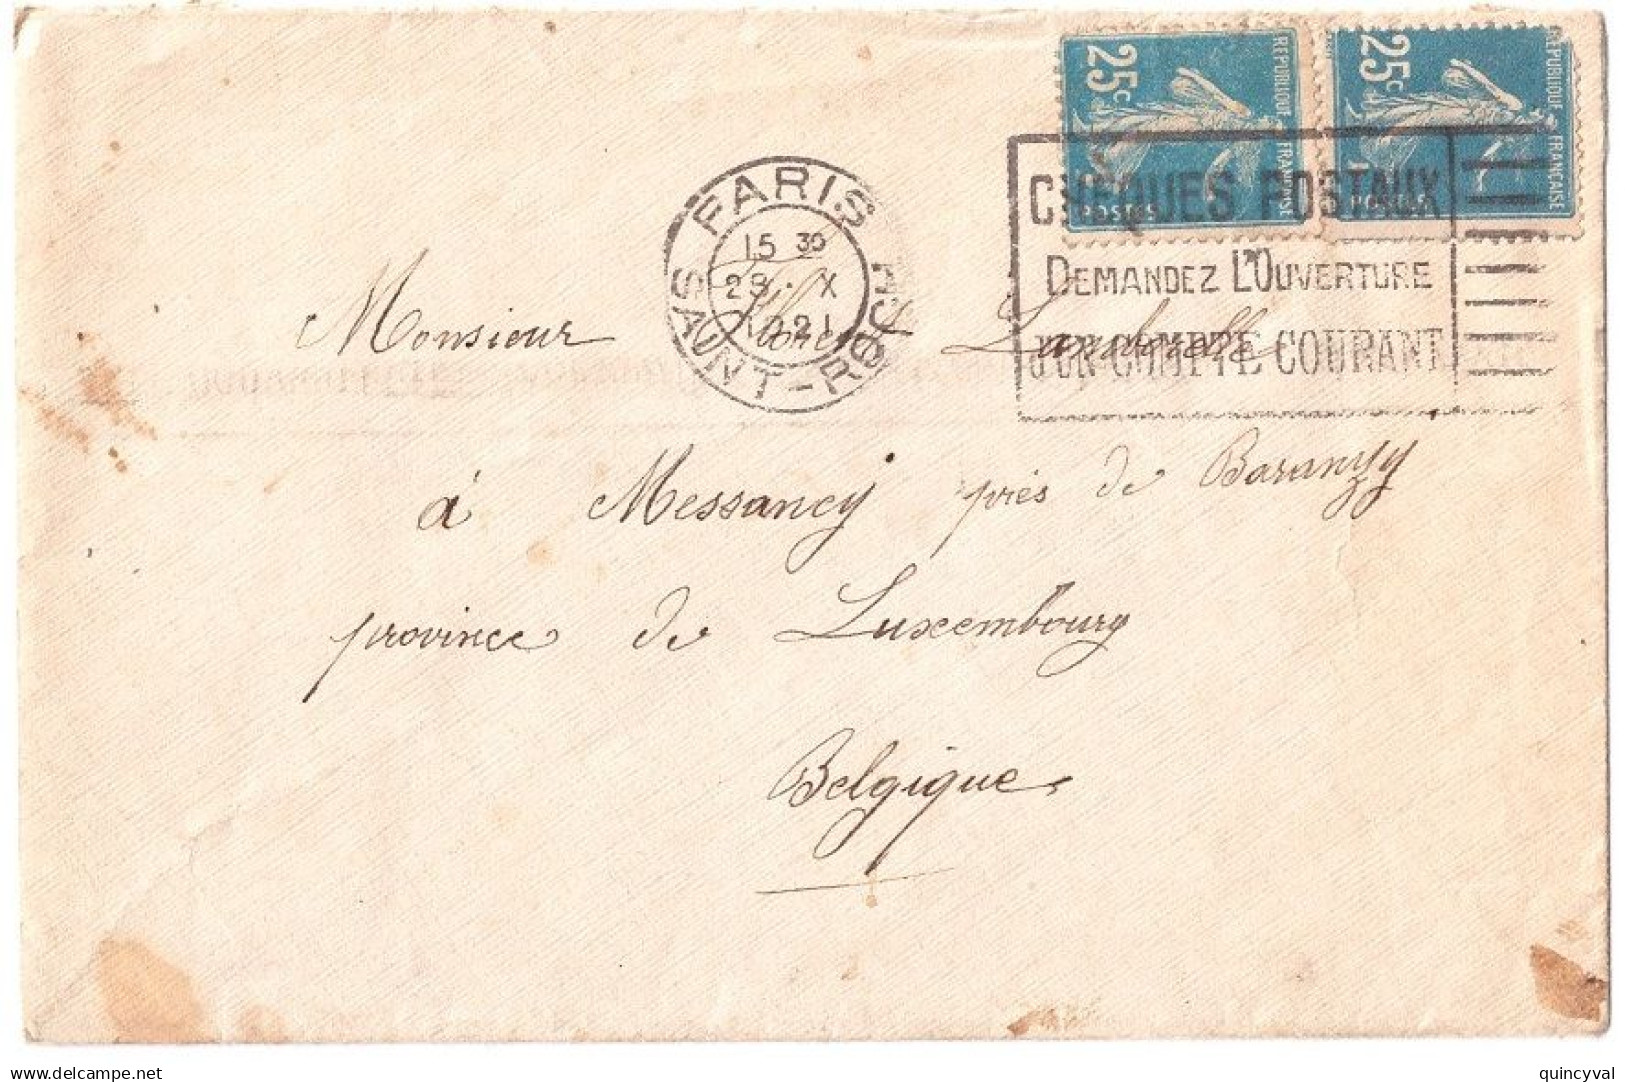 25c RÉPUBLIQUE FRANÇAISE POSTES
25c RÉPUBLIQUE FRANÇAISE POSTES
PARIS
RUE SAINT-ROCH
15 30
29 · X
1921
CHÈQUES POSTAUX
DEMANDEZ L'OUVERTURE
D'UN COMPTE COURANT
Monsieur Florent
à Messancy près de Baranzy
province de Luxembourg
Belgique
delcampe.net
quincyval